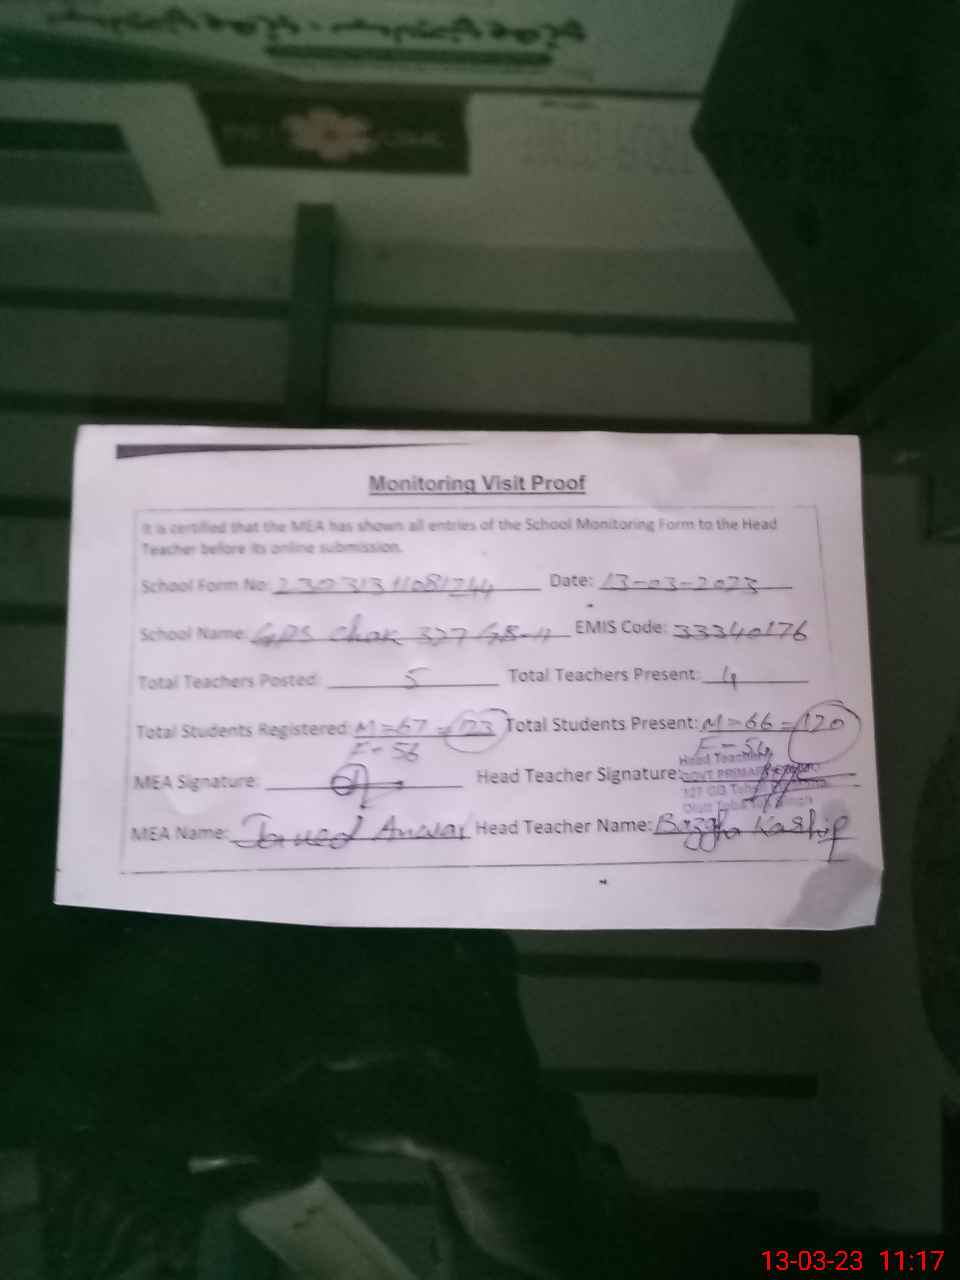 Monitoring Visit Proof
It is certified that the MEA has shown all entries of the School Monitoring Form to the Head
Teacher before its online submission.
School Form No: 23031311081244 Date: 13-03-2023
School Name: GPS Chak 327 GB-II EMIS Code: 33340176
Total Teachers Posted: 5 Total Teachers Present: 4
Total Students Registered: M=67=123 Total Students Present: M=66=120
F-56 F-54
MEA Signature: Head Teacher Signature:
Head Teacher
GOVT PRIMARY
327 GB
Distt Toba Tek Singh
MEA Name: Anwar Head Teacher Name: Kashif
13-03-23 11:17